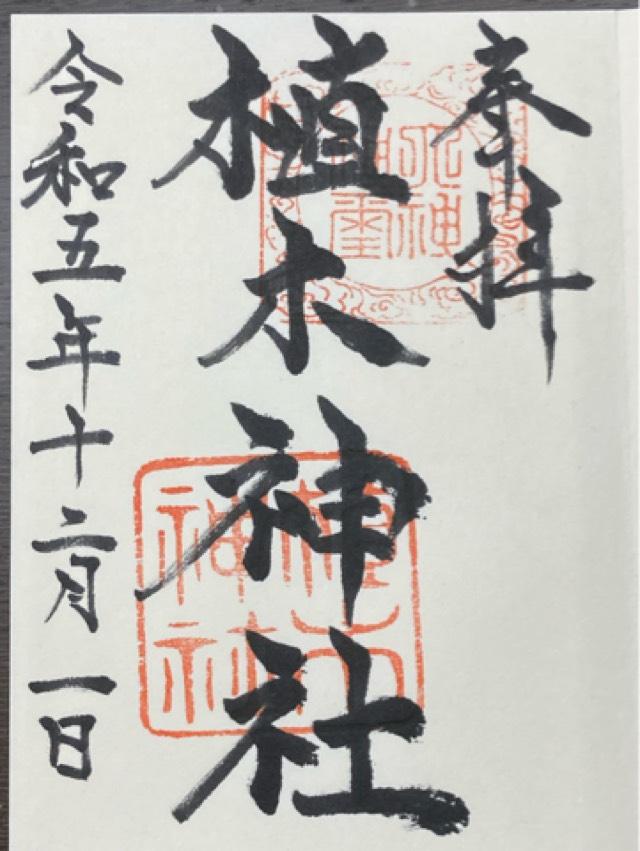 奉拝
植木神社
令和五年十二月一日
植木神社